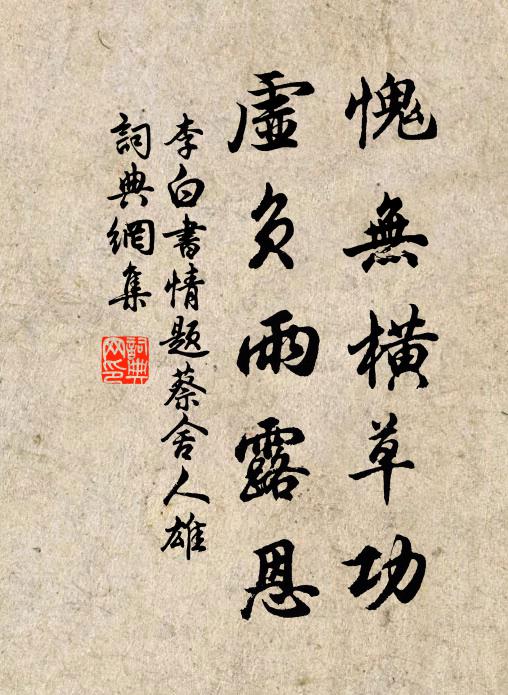 愧無橫草功
虛負雨露恩
李白書情題蔡舍人雄
詞典網集
詞典網印